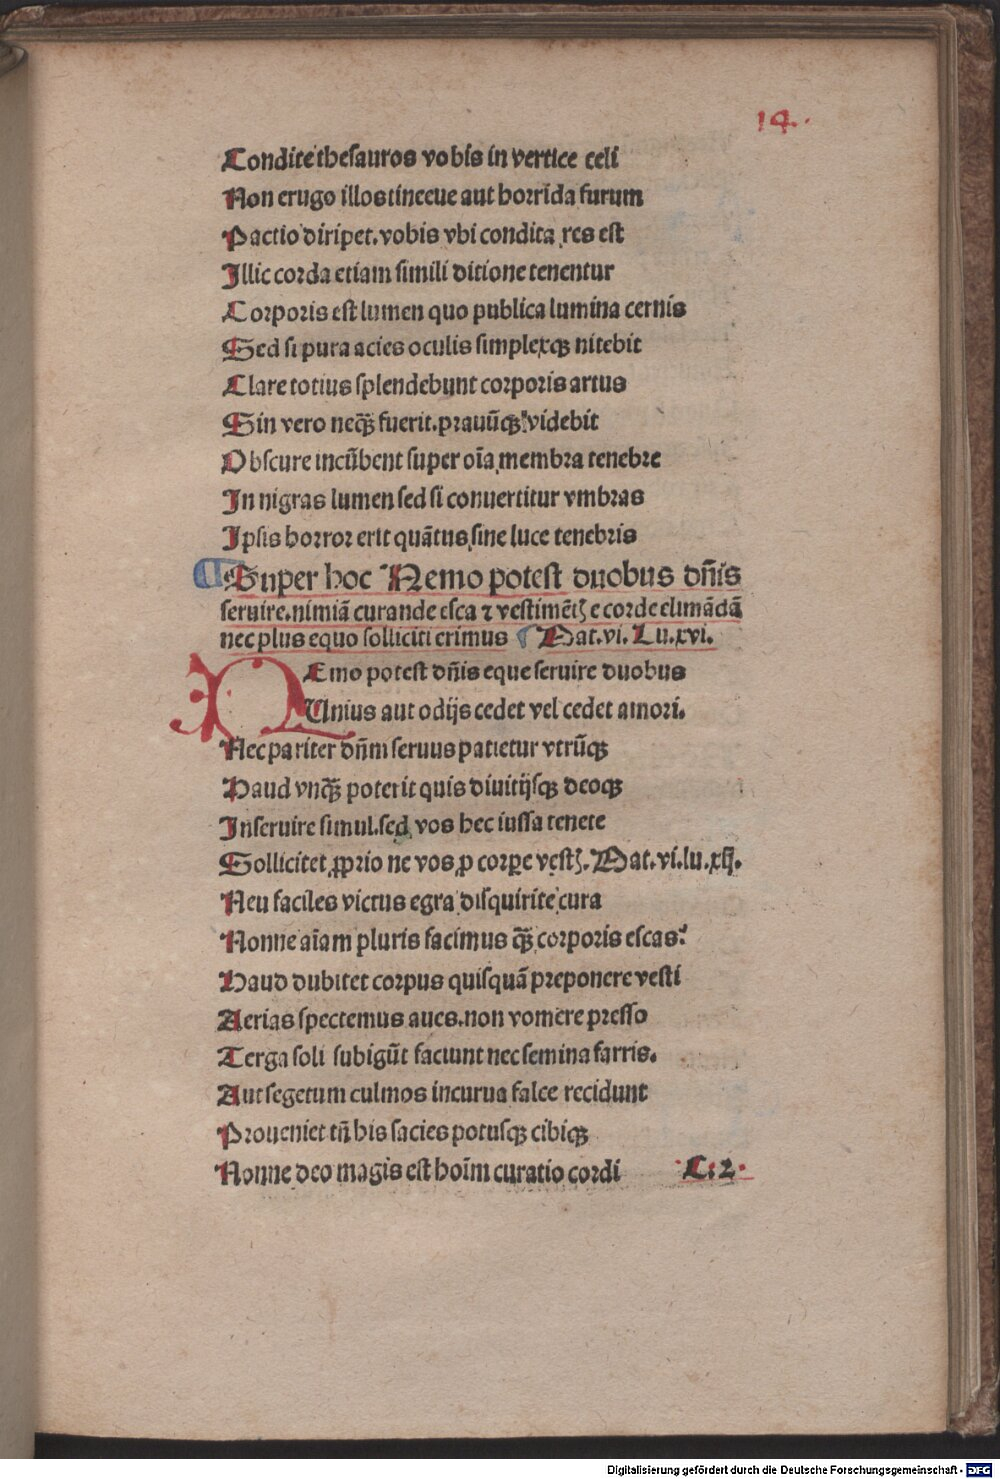 14.
Condite thesauros vobis in vertice celi
Non erugo illos tineeue aut horrida furum
Pactio diripet. vobis vbi condita res est
Illic corda etiam simili ditione tenentur
Corporis est lumen quo publica lumina cernis
Sed si pura acies oculis simplexqꝫ nitebit
Clare totius splendebunt corporis artus
Sin vero neqꝫ̃ fuerit. prauũqꝫ videbit
Obscure incũbent super oĩa membra tenebre
In nigras lumen sed si conuertitur vmbras
Ipsis horror erit quãtus sine luce tenebris
Super hoc Nemo potest duobus dñis
seruire. nimiã curande esca ⁊ vestimẽtꝭ e corde elimãdã
nec plus equo solliciti erimus Mat. vi. Lu. xvi.
NEmo potest dñis eque seruire duobus
Unius aut odijs cedet vel cedet amori.
Nec pariter dñm seruus patietur vtrũqꝫ
Haud vnqꝫ̃ poterit quis diuitijsqꝫ deoqꝫ
Inseruire simul. sed vos hec iussa tenete
Sollicitet ꝓprio ne vos ꝓ corꝑe vestꝭ. Mat. vi. lu. xij.
Neu faciles victus egra disquirite cura
Nonne aĩam pluris facimus qꝫ̃ corporis escas?
Haud dubitet corpus quisquã preponere vesti
Aerias spectemus aues. non vomere presso
Terga soli subigũt faciunt nec semina farris.
Aut segetum culmos incurua falce recidunt
Proueniet tñ his sacies potusqꝫ cibiqꝫ
Nonne deo magis est hoĩm curatio cordi C: 2
Digitalisierung gefördert durch die Deutsche Forschungsgemeinschaft - DFG